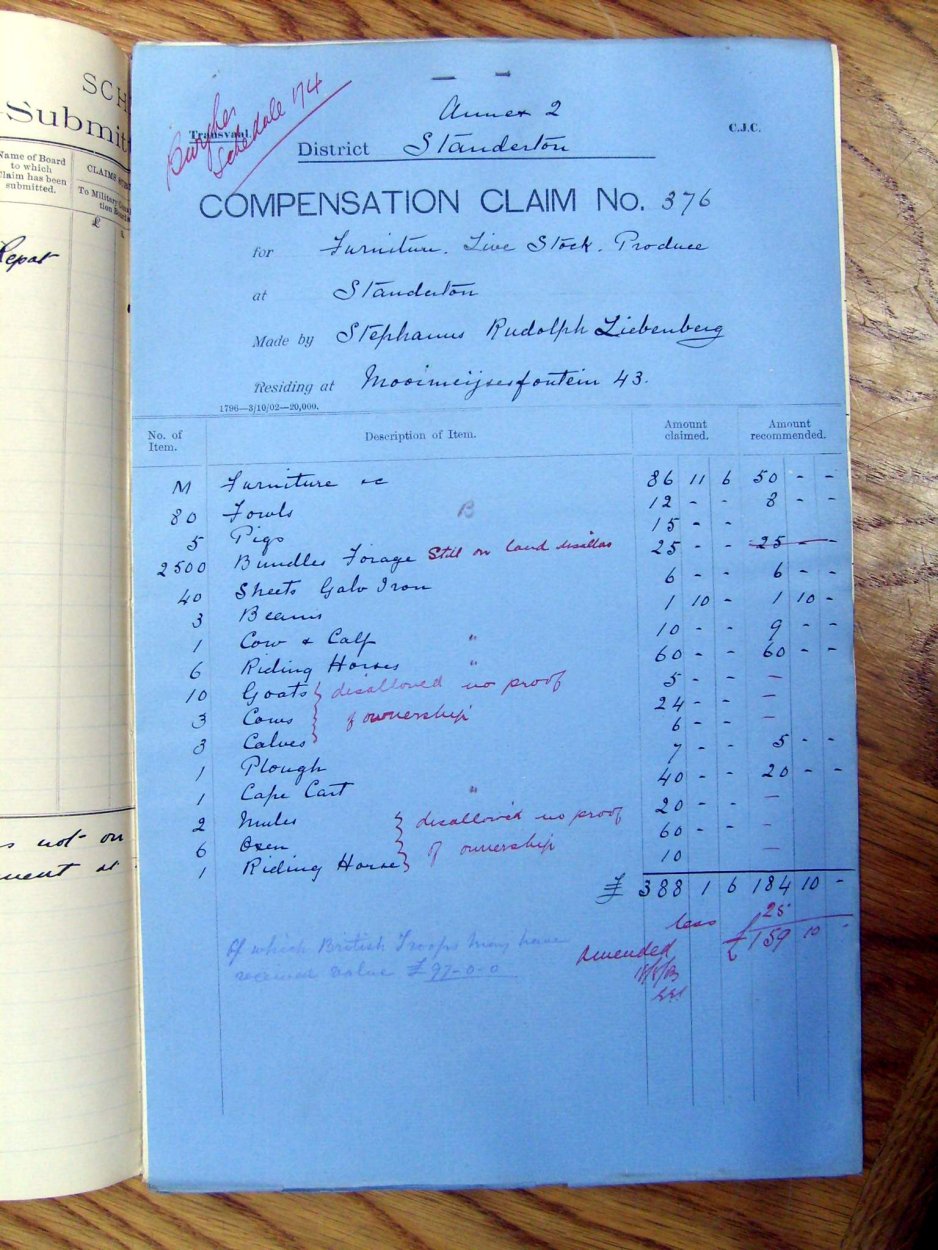 SCH
Submit
Name of Board
to which
Claim has been
submitted.
CLAIMS
To Military
£
Repat
s not on
ment at
Burgher
Schedule 174
Transvaal.
Annex 2
C.J.C.
District Standerton
COMPENSATION CLAIM No. 376
for Furniture. Live Stock. Produce
at Standerton
Made by Stephanus Rudolph Liebenberg
Residing at Mooimeijsesfontein 43.
1796—3/10/02—20,000.
No. of Item. Description of Item. Amount claimed. Amount recommended.
M Furniture &c 86 11 6 50 - -
80 Fowls B 12 - - 8 - -
5 Pigs 15 - -
2500 Bundles Forage Still on land 25 - - 25 - -
40 Sheets Galv Iron 6 - - 6 - -
3 Beams 1 10 - 1 10 -
1 Cow & Calf " 10 - - 9 - -
6 Riding Horses " 60 - - 60 - -
10 Goats disallowed no proof 5 - - —
3 Cows of ownership 24 - - —
3 Calves 6 - - —
1 Plough 7 - - 5 - -
1 Cape Cart " 40 - - 20 - -
2 Mules disallowed no proof 20 - - —
6 Oxen of ownership 60 - - —
1 Riding Horse 10 —
£ 388 1 6 184 10 -
less 25
Amended £159 10 -
18/8/03
Of which British Troops may have
received value £97-0-0